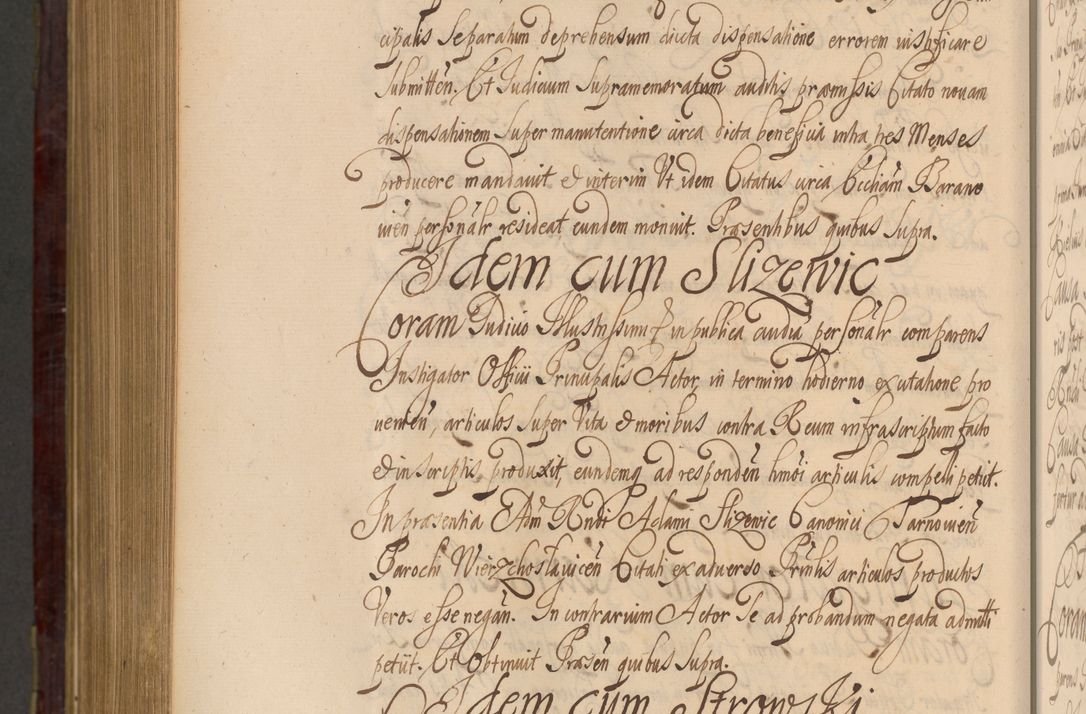 cipalis Separatum deprehensum ducta dispensatione errorem iustificare
Submitten. Et Judicium Supramemoratum auditis præmissis Citato novam
dispensationem Super manutentione circa dicta beneficia intra tres Menses
producere mandavit et interim Vt idem Citatus circa Eccliam Barano
uien personalr resideat eundem monuit. Præsentibus quibus Supra.
Idem cum Slizewic
Coram Judicio Illustrissimi in publica audia personalr comparens
Instigator Officii Principalis Actor, in termino hodierno ex citatione pro
venien, articulos Super Vita et moribus contra Reum infrascriptum facto
et in Scriptis, produxit, eundemq ad responden hmoi articulis compelli petiit.
In præsentia Adm Rndi Adami Slizewic Canonici Tarnovien
Parochi Wierzchoslavicen Citati ex adverso Prmlis articulos productos
Veros esse negan. In contrarium Actor Se ad probandum negata admitti
petiit. Et Obtinuit Præsen quibus Supra.
Idem cum Strowski